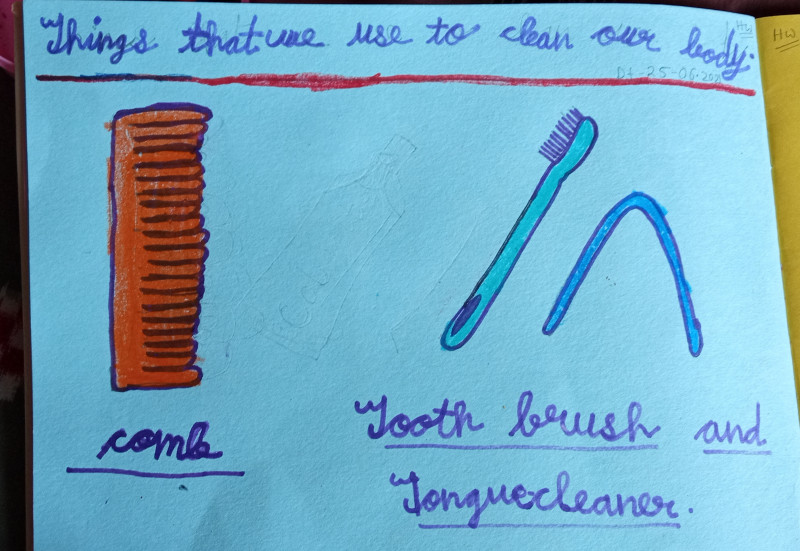 Things that we use to clean our body.
HW
HW
Dt-25-06-2021
comb
Tooth brush and
Tongue cleaner.